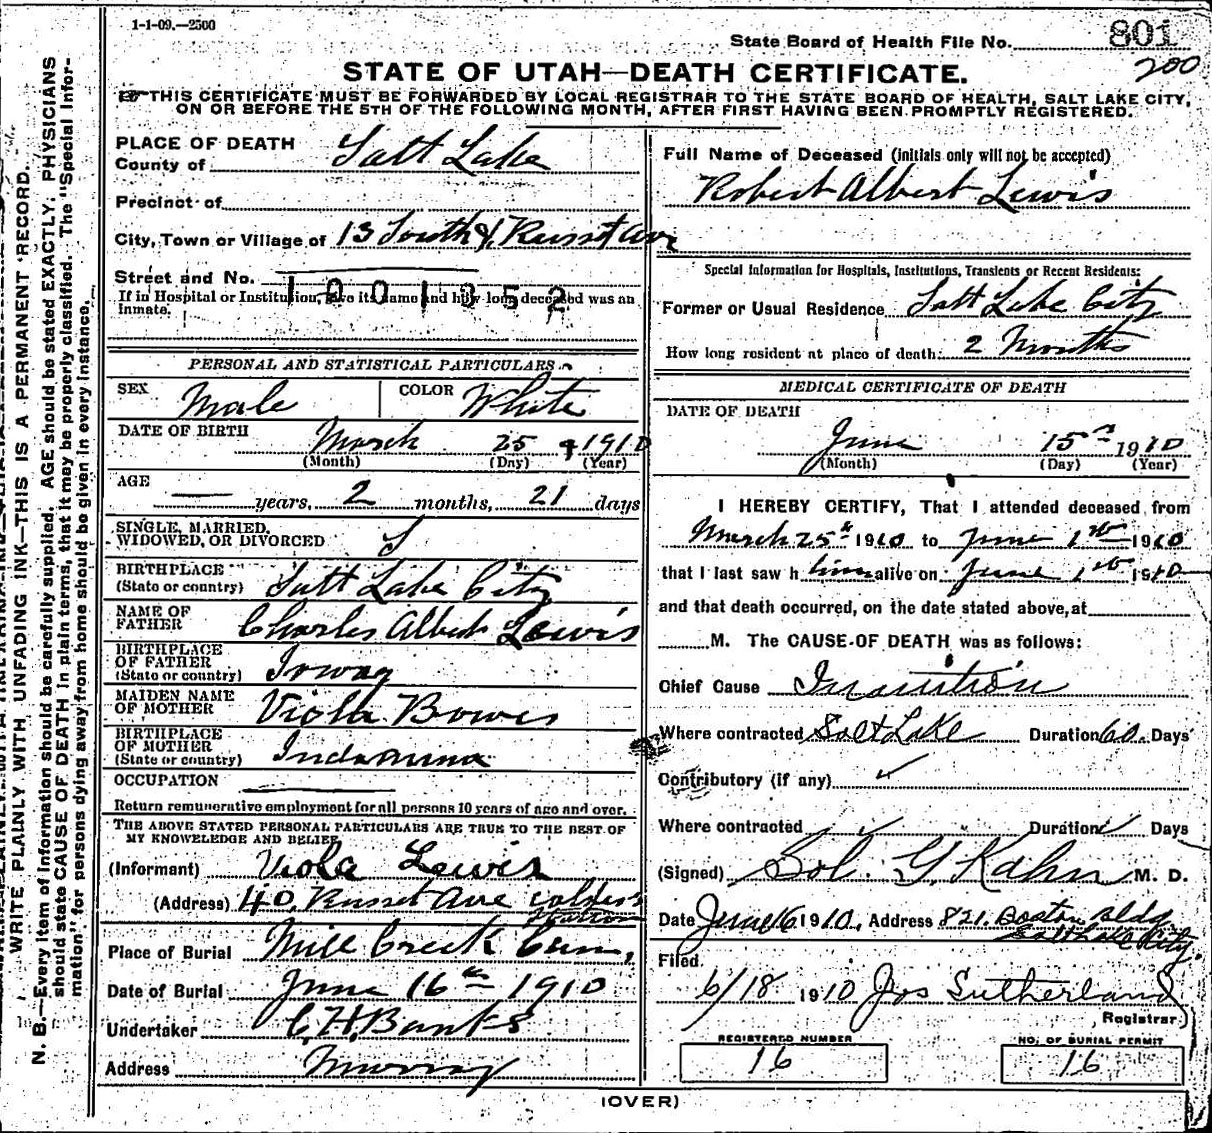 1-1-09.—2500
State Board of Health File No. 801
200
STATE OF UTAH—DEATH CERTIFICATE.
THIS CERTIFICATE MUST BE FORWARDED BY LOCAL REGISTRAR TO THE STATE BOARD OF HEALTH, SALT LAKE CITY,
ON OR BEFORE THE 5TH OF THE FOLLOWING MONTH, AFTER FIRST HAVING BEEN PROMPTLY REGISTERED.
WRITE PLAINLY WITH UNFADING INK—THIS IS A PERMANENT RECORD.
N. B.—Every item of information should be carefully supplied. AGE should be stated EXACTLY. PHYSICIANS
should state CAUSE OF DEATH in plain terms, that it may be properly classified. The "Special Infor-
mation" for persons dying away from home should be given in every instance.
PLACE OF DEATH
County of Salt Lake
Precinct of
City, Town or Village of 13 South & Russet Ave
Street and No.
1001352
If in Hospital or Institution, give its name and how long deceased was an
inmate.
PERSONAL AND STATISTICAL PARTICULARS
SEX Male COLOR White
DATE OF BIRTH March 25 1910
(Month) (Day) (Year)
AGE — years, 2 months, 21 days
SINGLE, MARRIED,
WIDOWED, OR DIVORCED S
BIRTHPLACE
(State or country) Salt Lake City
NAME OF
FATHER Charles Albert Lewis
BIRTHPLACE
OF FATHER
(State or country)
MAIDEN NAME
OF MOTHER Viola Bowes
BIRTHPLACE
OF MOTHER
(State or country) Indianna
OCCUPATION
Return remunerative employment for all persons 10 years of age and over.
THE ABOVE STATED PERSONAL PARTICULARS ARE TRUE TO THE BEST OF
MY KNOWLEDGE AND BELIEF
(Informant) Viola Lewis
(Address) 40 Russet Ave
Place of Burial Mill Creek Cem,
Date of Burial June 16th 1910
Undertaker C.H. Banks
Address Murray
Full Name of Deceased (initials only will not be accepted)
Robert Albert Lewis
Special Information for Hospitals, Institutions, Transients or Recent Residents:
Former or Usual Residence Salt Lake City
How long resident at place of death: 2 Months
MEDICAL CERTIFICATE OF DEATH
DATE OF DEATH
June 15th 1910
(Month) (Day) (Year)
I HEREBY CERTIFY, That I attended deceased from
March 25th 1910 to June 1st 1910
that I last saw h him alive on June 1st 1910
and that death occurred, on the date stated above, at
M. The CAUSE OF DEATH was as follows:
Chief Cause Inanition
Where contracted Salt Lake Duration 60 Days
Contributory (if any)
Where contracted Duration Days
(Signed) Sol. G. Kahn M. D.
Date June 16 1910, Address 821 Boston Bldg
Salt Lake City.
Filed
6/18 1910 Jos Sutherland
Registrar
REGISTERED NUMBER
16
NO. OF BURIAL PERMIT
16
(OVER)